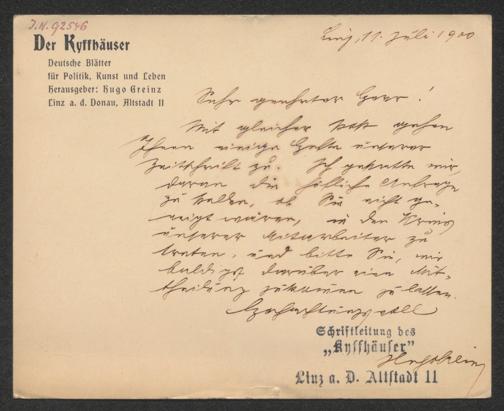 J.N. 92546
Der Kyffhäuser
Deutsche Blätter
für Politik, Kunst und Leben
Herausgeber: Hugo Greinz
Linz a. d. Donau, Altstadt 11
Linz, 11. Juli 1900
Sehr geehrter Herr!
Mit gleicher Post gehen
Ihnen einige Hefte unserer
Zeitschrift zu. Ich gestatte mir,
daran die höfliche Anfrage
zu stellen, ob Sie nicht ge-
neigt wären, in den Kreis
unserer Mitarbeiter zu
treten, und bitte Sie, mir
baldigst darüber eine Mit-
theilung zukommen zu lassen.
Hochachtungsvoll
Schriftleitung des
„Kyffhäuser"
Hugo Greinz
Linz a. D. Altstadt 11